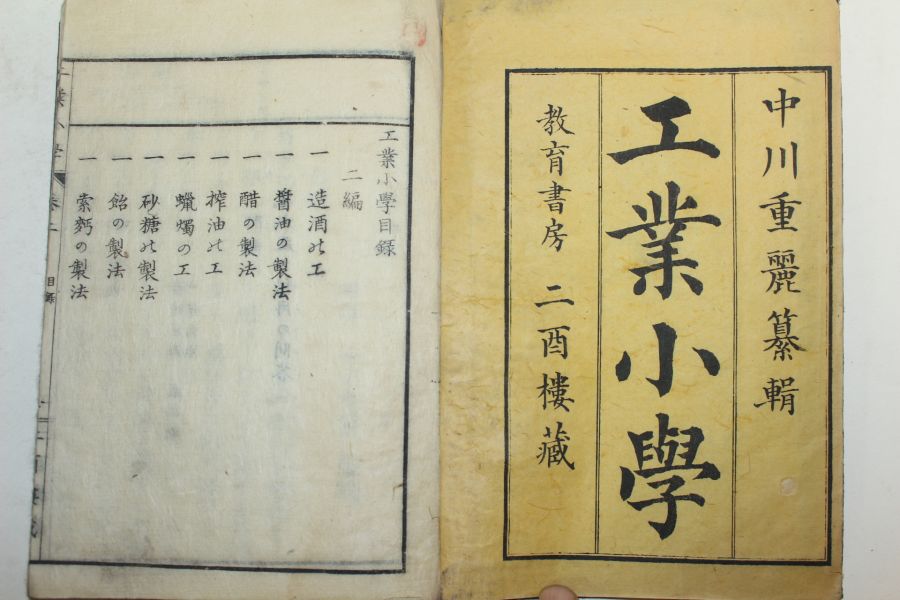 中川重麗纂輯
工業小學
教育書房 二酉樓藏
工業小學目録
二編
一 造酒の工
一 醬油の製法
一 醋の製法
一 搾油の工
一 蠟燭の工
一 砂糖の製法
一 飴の製法
一 索麪の製法
工業小學 卷二 目録